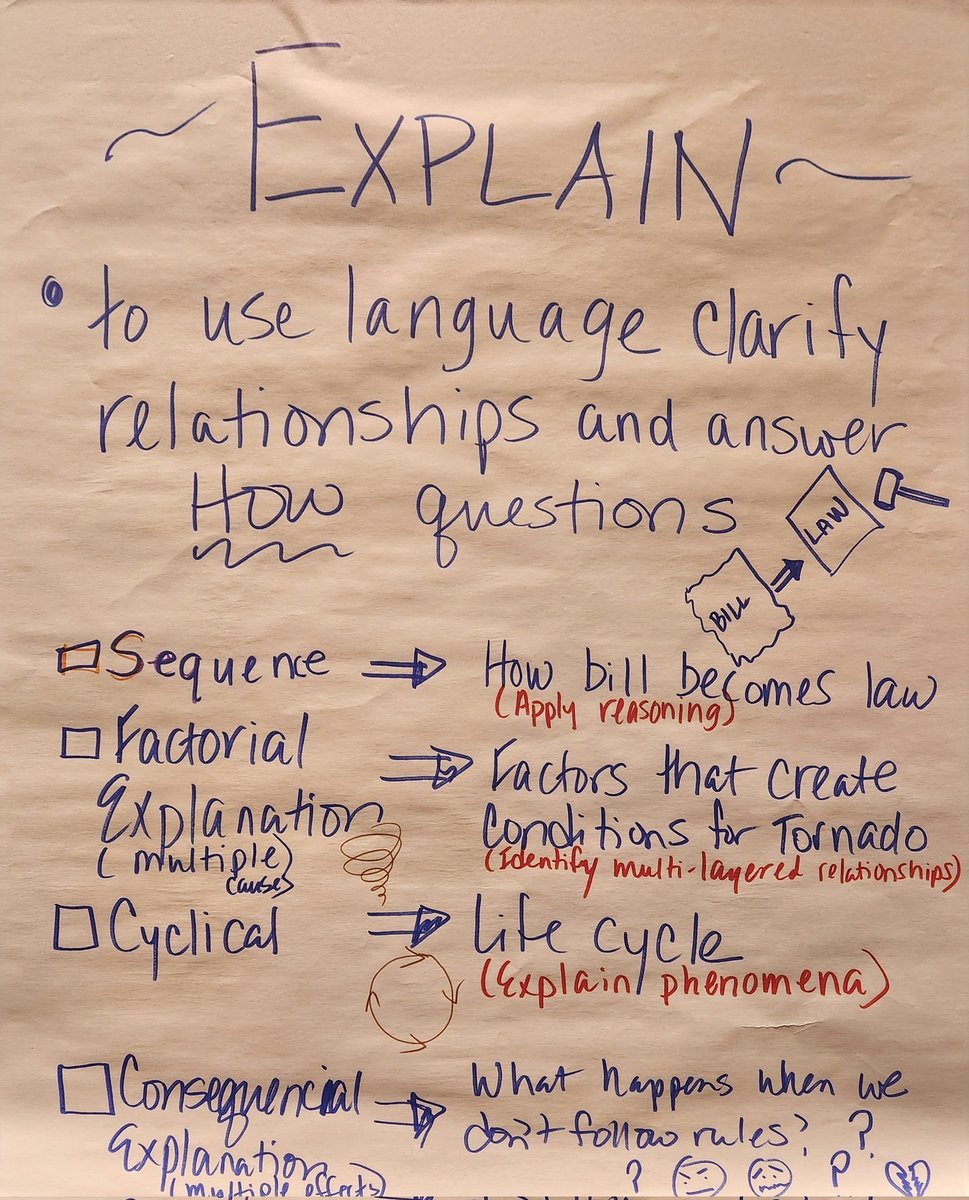 ~ EXPLAIN ~
• to use language clarify
relationships and answer
How questions
LAW
BILL
Sequence ⇒ How bill becomes law
(Apply reasoning)
Factorial ⇒ Factors that create
Explanation conditions for Tornado
(multiple causes) (Identify multi-layered relationships)
Cyclical ⇒ Life cycle
(Explain phenomena)
Consequencial ⇒ What happens when we
Explanation don't follow rules? ?
(multiple effects) ? ?